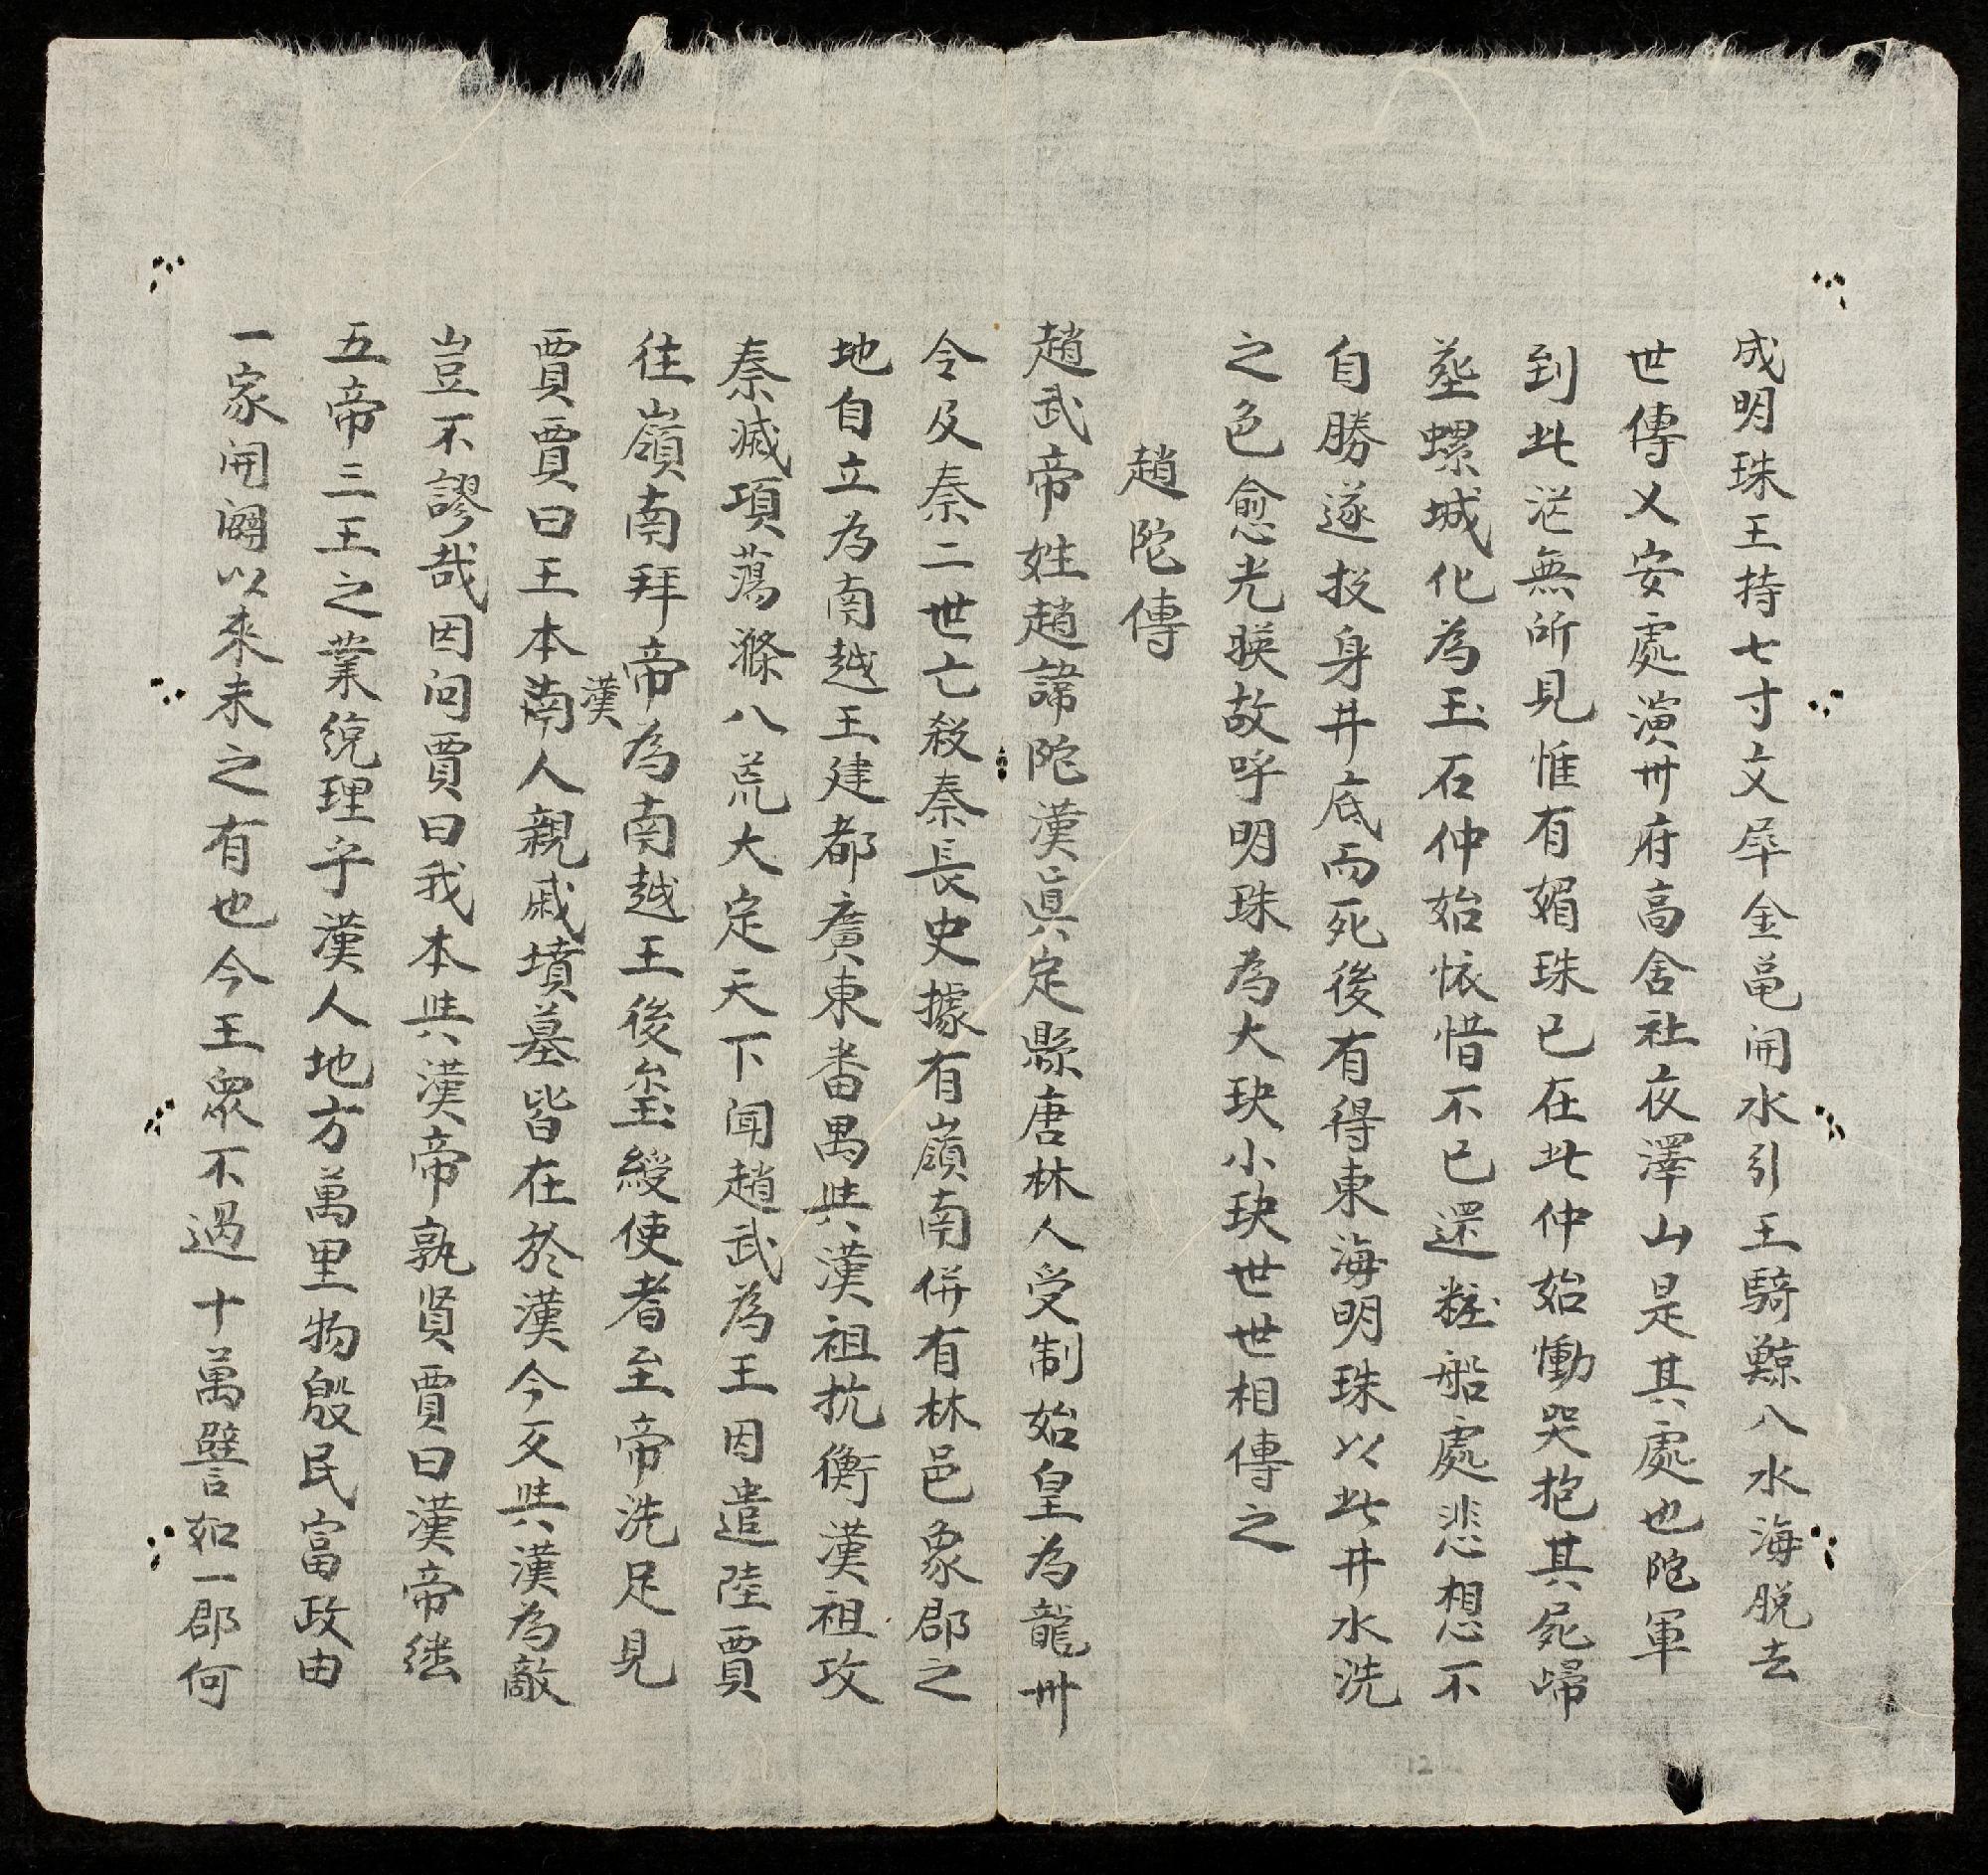 成明珠王持七寸文犀金黾開水引王騎鯨入水海脱去
世傳乂安處演州府高舍社夜澤山是其處也陀軍
到此茫無所見惟有媚珠已在此仲始慟哭抱其屍歸
葬螺城化為玉石仲始懷惜不已還粧船處悲想不
自勝遂投身井底而死後有得東海明珠以此井水洗
之色愈光暎故呼明珠為大玦小玦世世相傳之
趙陀傳
趙武帝姓趙諱陀漢真定縣唐林人受制始皇為龍州
令及秦二世亡殺秦長史據有嶺南併有林邑象郡之
地自立為南越王建都廣東畨禺與漢祖抗衡漢祖攻
秦滅項蕩滌八荒大定天下闻趙武為王因遣陸賈
往嶺南拜帝為南越王後璽綬使者至帝洗足見
賈賈曰王本漢人親戚墳墓皆在於漢今反與漢為敵
豈不謬哉因问賈曰我本與漢帝孰賢賈曰漢帝継
五帝三王之業統理乎漢人地方萬里物殷民富政由
一家開闢以來未之有也今王眾不過十萬譬如一郡何
12